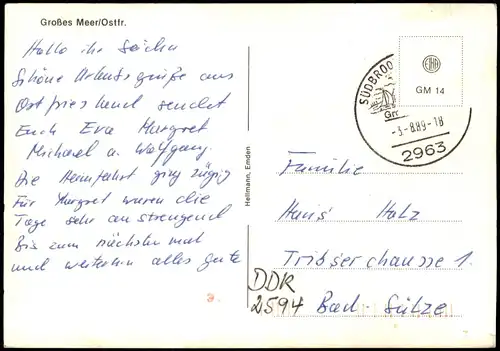 Großes Meer/Ostfr.
Hallo ihr
Schöne Urlaubsgrüße aus
Ostfriesland sendet
Euch Eva Margret
Michael u. Wolfgang.
Die Heimfahrt ging zügig
Für Margret waren die
Tage sehr anstrengend
Bis zum nächsten mal
und weiterhin alles gute
Hellmann, Emden
SÜDBROO
GM 14
-3.-8.89-18
2963
Familie
Hans Holz
Tribserchaussee 1.
DDR
2594 Bad-Sülze